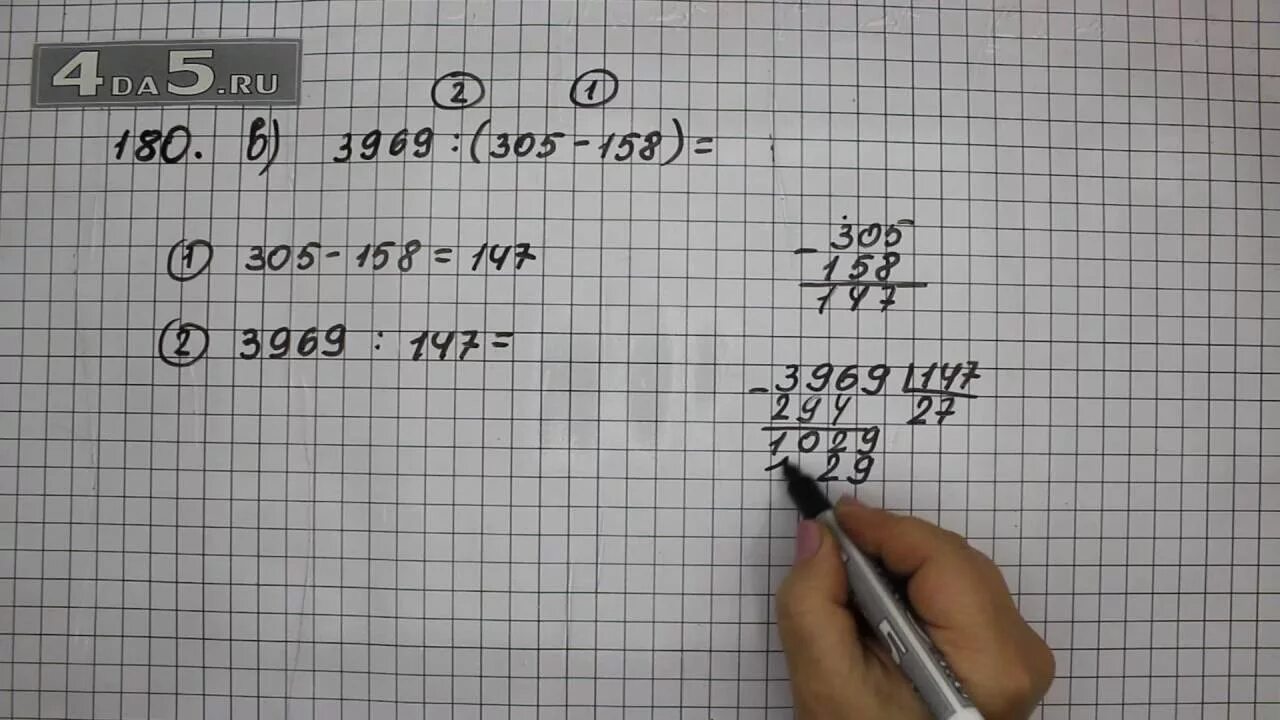 4DA5.RU
② ①
180. в) 3969 : (305 - 158) =
① 305 - 158 = 147
② 3969 : 147 =
- 305
158
147
- 3969 147
294 27
1029
1 29